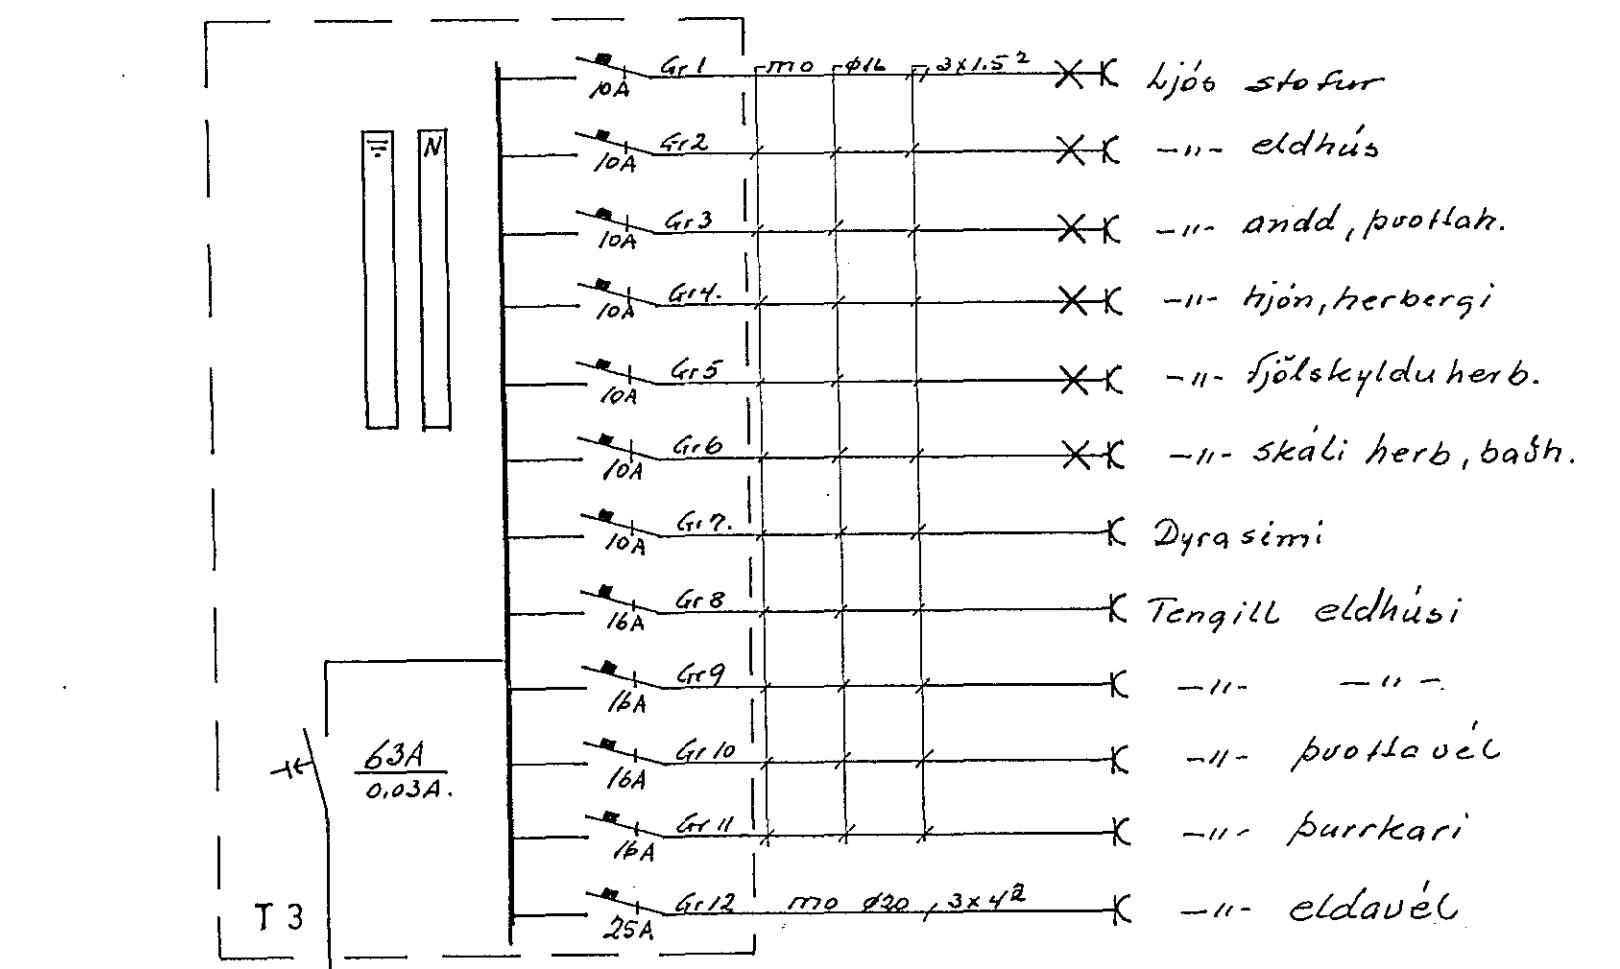 Gr 1 mo ø16 3x1.5² Ljós stofur
10A
N Gr 2 -"- eldhús
10A
Gr 3 -"- andd, þvottah.
10A
Gr 4. -"- hjón, herbergi
10A
Gr 5 -"- fjölskylduherb.
10A
Gr 6 -"- skáli herb, baðh.
10A
Gr 7. Dyrasimi
10A
Gr 8 Tengill eldhúsi
16A
Gr 9 -"- -"-
16A
63A Gr 10 -"- þvottavél
0,03A. 16A
Gr 11 -"- þurrkari
16A
T 3 Gr 12 mo ø20 3x4² -"- eldavél
25A